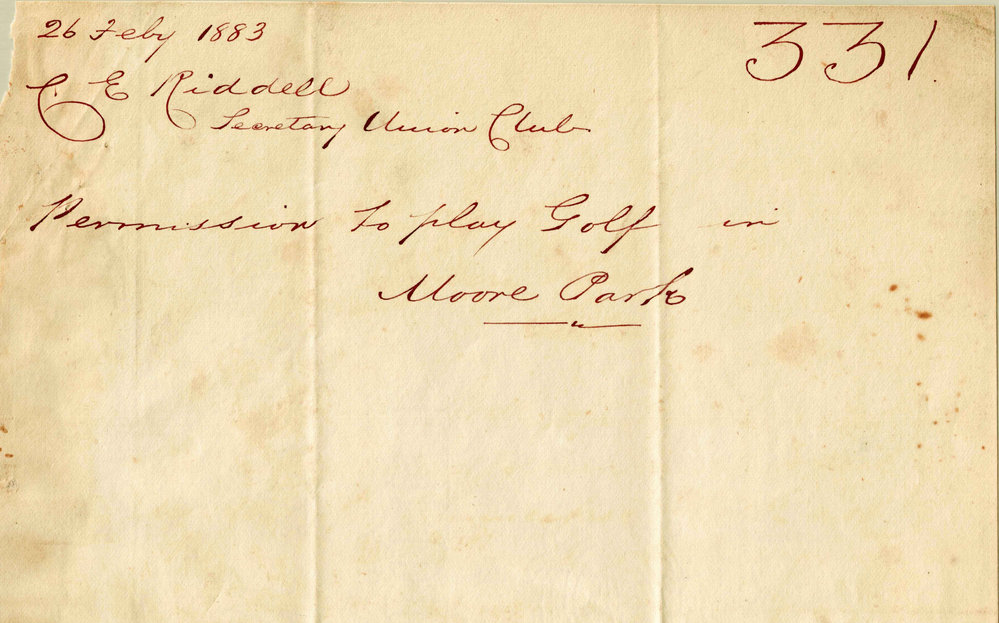 26 Feby 1883
331.
C. E Riddell
Secretary Union Club
Permission to play Golf in
Moore Park